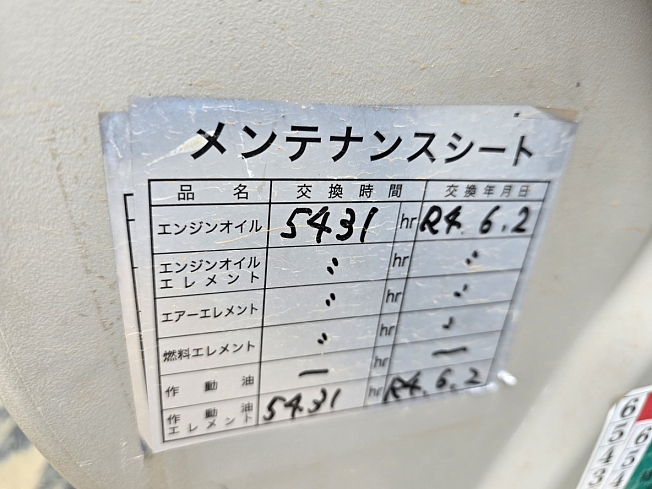 メンテナンスシート
品名 交換時間 交換年月日
エンジンオイル 5431 hr R4.6.2
エンジンオイルエレメント 〃 hr 〃
エアーエレメント 〃 hr 〃
燃料エレメント 〃 hr 〃
作動油 ー hr ー
作動油エレメント 5431 hr R4.6.2
6
5 6
4 5
3 4